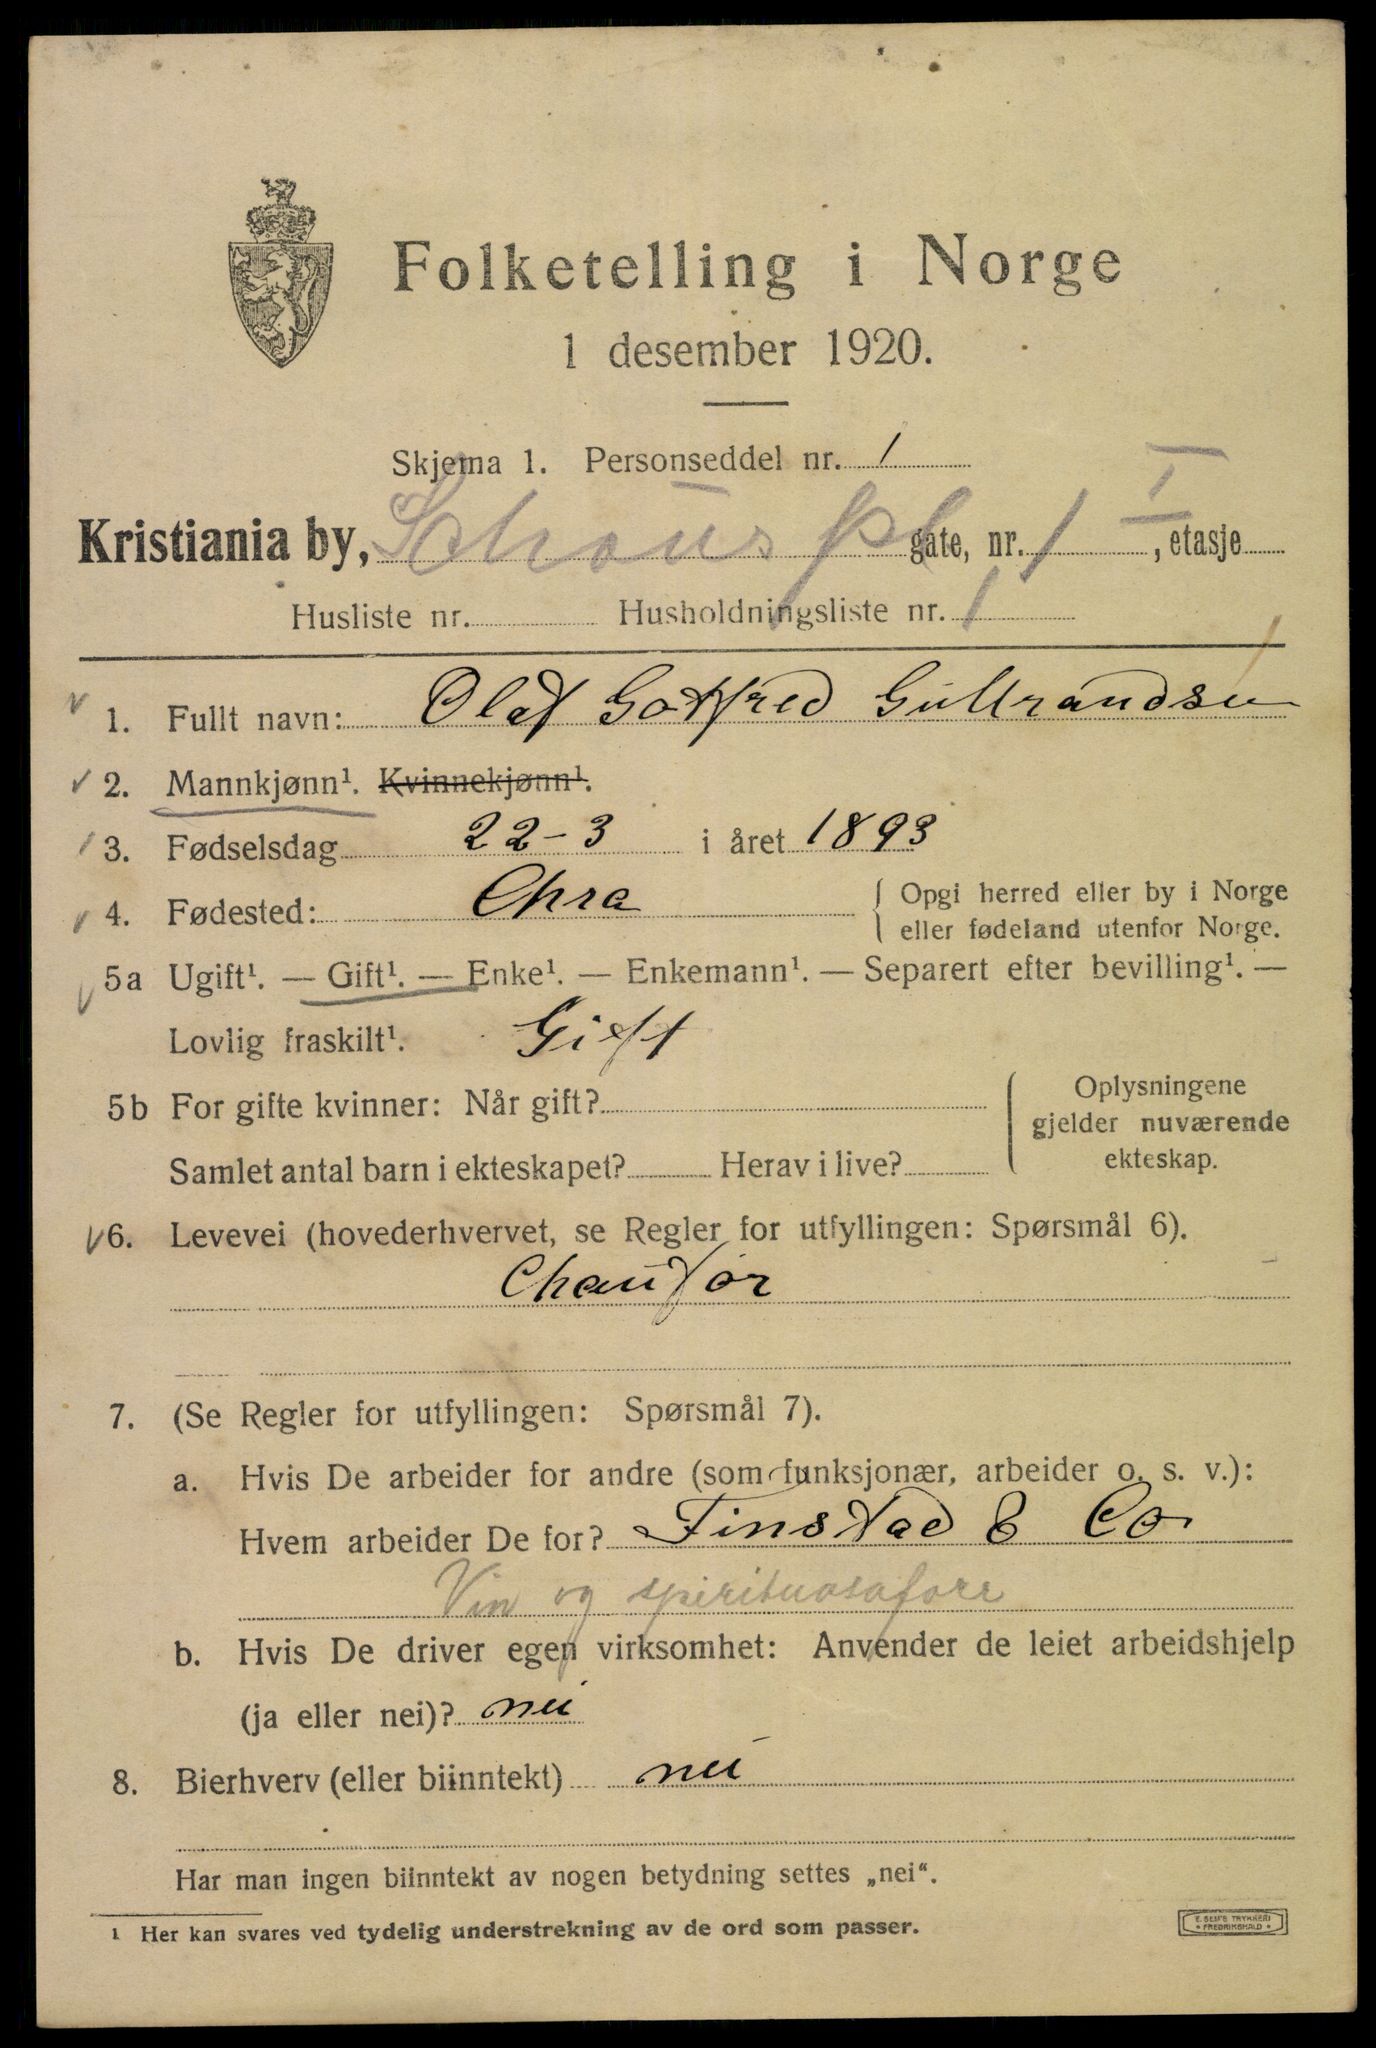 Folketelling i Norge
1 desember 1920.
Skjema 1. Personseddel nr. 1
Kristiania by, Schous pl gate, nr. 1 I, etasje
Husliste nr. Husholdningsliste nr. 1
1. Fullt navn: Olaf Gotfred Gulbrandsen
2. Mannkjønn¹. Kvinnekjønn¹.
3. Fødselsdag 22-3 i året 1893
4. Fødested: Chra { Opgi herred eller by i Norge
eller fødeland utenfor Norge.
5a Ugift¹. — Gift¹. — Enke¹. — Enkemann¹. — Separert efter bevilling¹. —
Lovlig fraskilt¹. Gift
5b For gifte kvinner: Når gift? { Oplysningene
gjelder nuværende
Samlet antal barn i ekteskapet? Herav i live? ekteskap.
6. Levevei (hovederhvervet, se Regler for utfyllingen: Spørsmål 6).
Chaufør
7. (Se Regler for utfyllingen: Spørsmål 7).
a. Hvis De arbeider for andre (som funksjonær, arbeider o. s. v.):
Hvem arbeider De for? Finstad & Co
Vin og spirituosaforr
b. Hvis De driver egen virksomhet: Anvender de leiet arbeidshjelp
(ja eller nei)? nei
8. Bierhverv (eller biinntekt) nei
Har man ingen biinntekt av nogen betydning settes „nei“.
1 Her kan svares ved tydelig understrekning av de ord som passer.
E. SEM'S TRYKKERI
• FREDRIKSHALD •